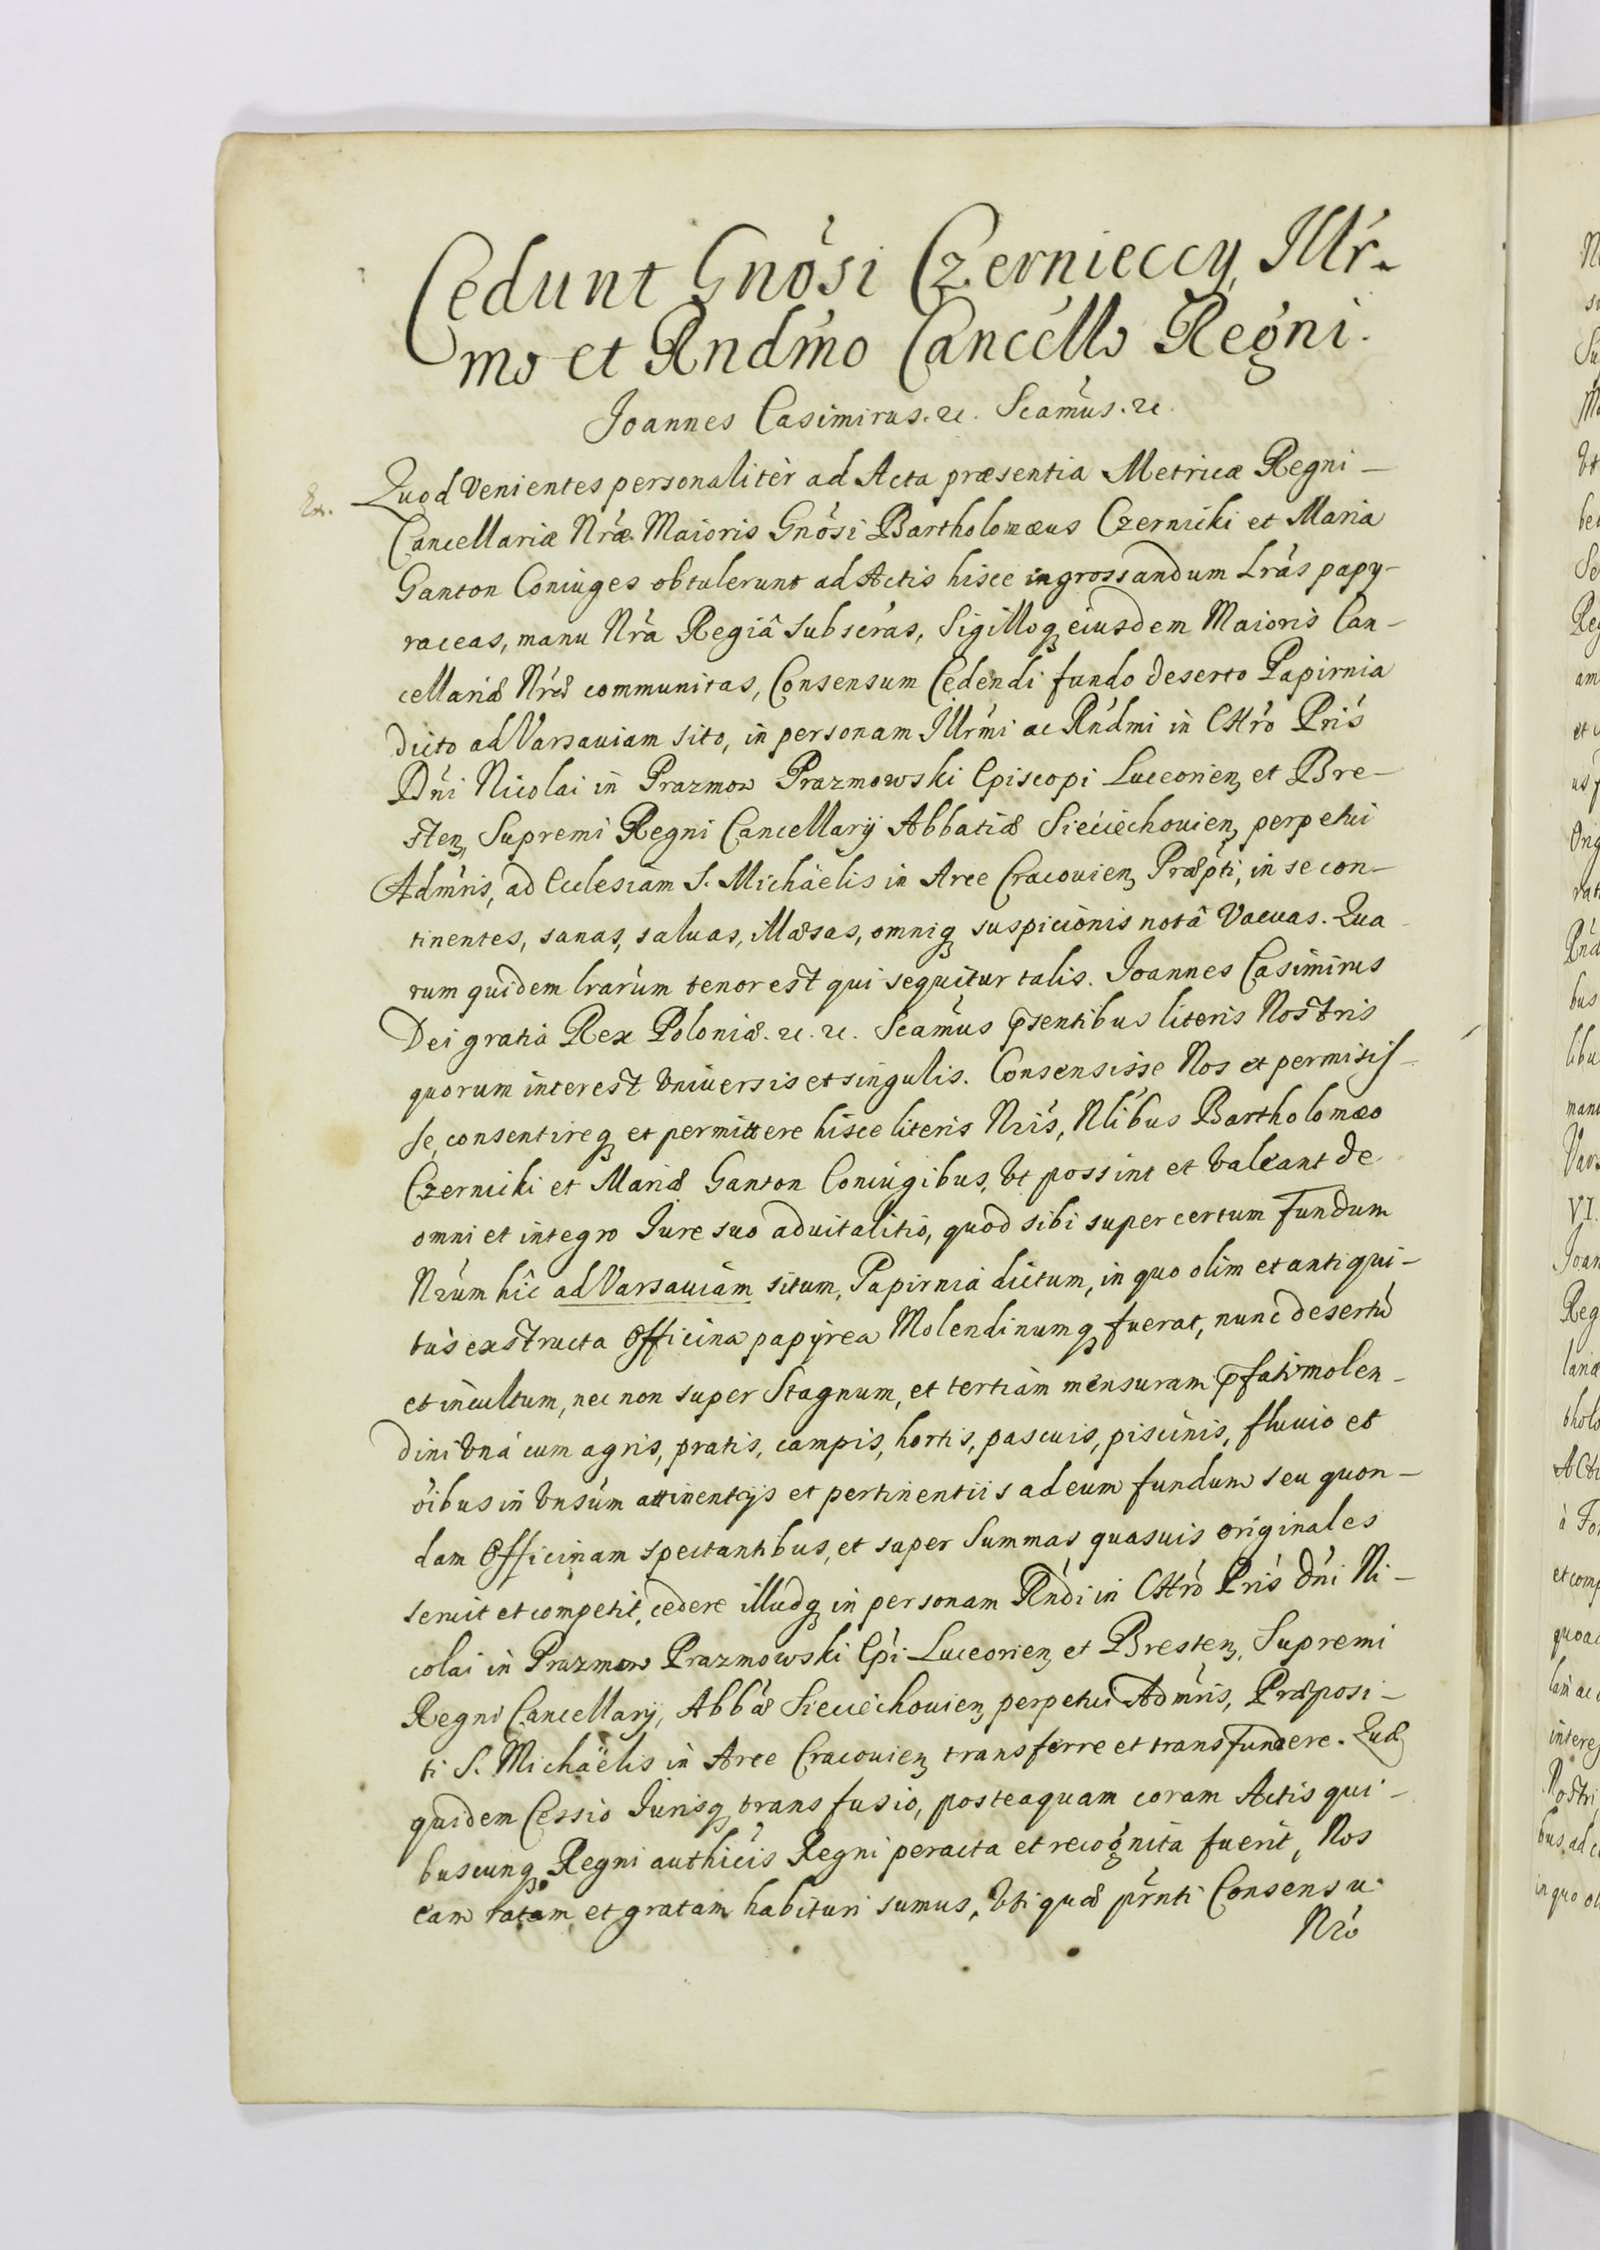 Cedunt Gnósi Czernieccy, Illr-
mo et Rndmo Cancello Regni.
Joannes Casimirus. &c. Scamus. &c.
Quod Venientes personaliter ad Acta præsentia Metricæ Regni —
Cancellariæ Nræ Maioris Gnosi Bartholomæus Czernicki et Maria
Ganton Coniuges obtulerunt ad Actis hisce ingrossandum Lras papy-
raceas, manu Nra Regiâ subscras, Sigilloq eiusdem Maioris Can-
cellariæ Nræ communitas, Consensum Cedendi fundo deserto Papirnia
dicto ad Varsauiam sito, in personam Illrmi ac Rndmi in Chro Pris
Dni Nicolai in Prazmow Prazmowski Episcopi Luceorien, et Bre-
sten, Supremi Regni Cancellarij Abbatiæ Sieciechouien, perpetui
Admris, ad Ecclesiam S. Michäelis in Arce Cracouien, Præpti, in se con-
tinentes, sanas, saluas, illæsas, omniq suspicionis notâ Vacuas. Qua
rum quidem lrarum tenor est qui sequitur talis. Joannes Casimirus
Dei gratia Rex Poloniæ. &c. &c. Scamus psentibus literis Nostris
quorum interest Vniuersis et singulis. Consensisse Nos et permisis-
se, consentireq et permittere hisce literis Nris, Nlibus Bartholomæo
Czernicki et Mariæ Ganton Coniugibus, Vt possint et Valeant de
omni et integro Jure suo aduitalitio, quod sibi super certum fundum
Nrum hîc ad Varsauiam situm, Papirnia dictum, in quo olim et antiqui-
tus exstructa Officina papyrea Molendinumq fuerat, nunc desertū
et incultum, nec non super Stagnum, et tertiam mensuram pfati molen-
dini Vná cum agris, pratis, campis, hortis, pascuis, piscinis, fluuio et
oibus in Vnsum attinentijs et pertinentiis ad eum fundum seu quon-
dam Officinam spectantibus, et super Summas quasuis originales
seruit et competit, cedere illudq in personam Rndi in Chro Pris Dni Ni-
colai in Prazmow Prazmowski Epi Luceorien, et Bresten, Supremi
Regni Cancellarij, Abbæ Sieciechouien, perpetui Admris, Præposi-
ti S. Michäelis in Arce Cracouien, transferre et transfundere. Quæ
quidem Cessio Jurisq transfusio, posteaquam coram Actis qui-
buscunq Regni authicis Regni peracta et recognita fuerit, Nos
eam ratam et gratam habituri sumus, Vti quæ prnti Consensu
Nro